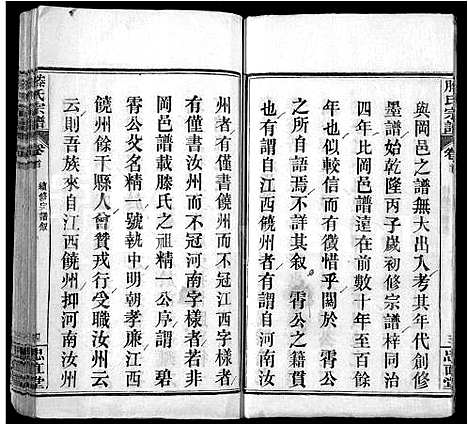 與岡邑之譜無大出入考其年代創修
墨譜始乾隆丙子歲初修宗譜梓同治
四年比岡邑譜遠在前數十年至百餘
年也似較信而有徵惜乎關於 霄公之籍貫
亦略焉不詳其叙 霄公之籍貫
有謂自江西饒州者有謂自河南汝
滕氏宗譜 卷首
三 忠直堂
州者有僅書饒州而不冠江西字樣者
有僅書汝州而不冠河南字樣者若非
岡邑譜載滕氏之祖精一公序謂 碧
霄公爻名精一號執中明朝孝廉江西
饒州餘干縣人曾贊戎行受職汝州云
云則吾族來自江西饒州抑河南汝州
滕氏宗譜 卷首
續修宗譜叙
四 忠直堂